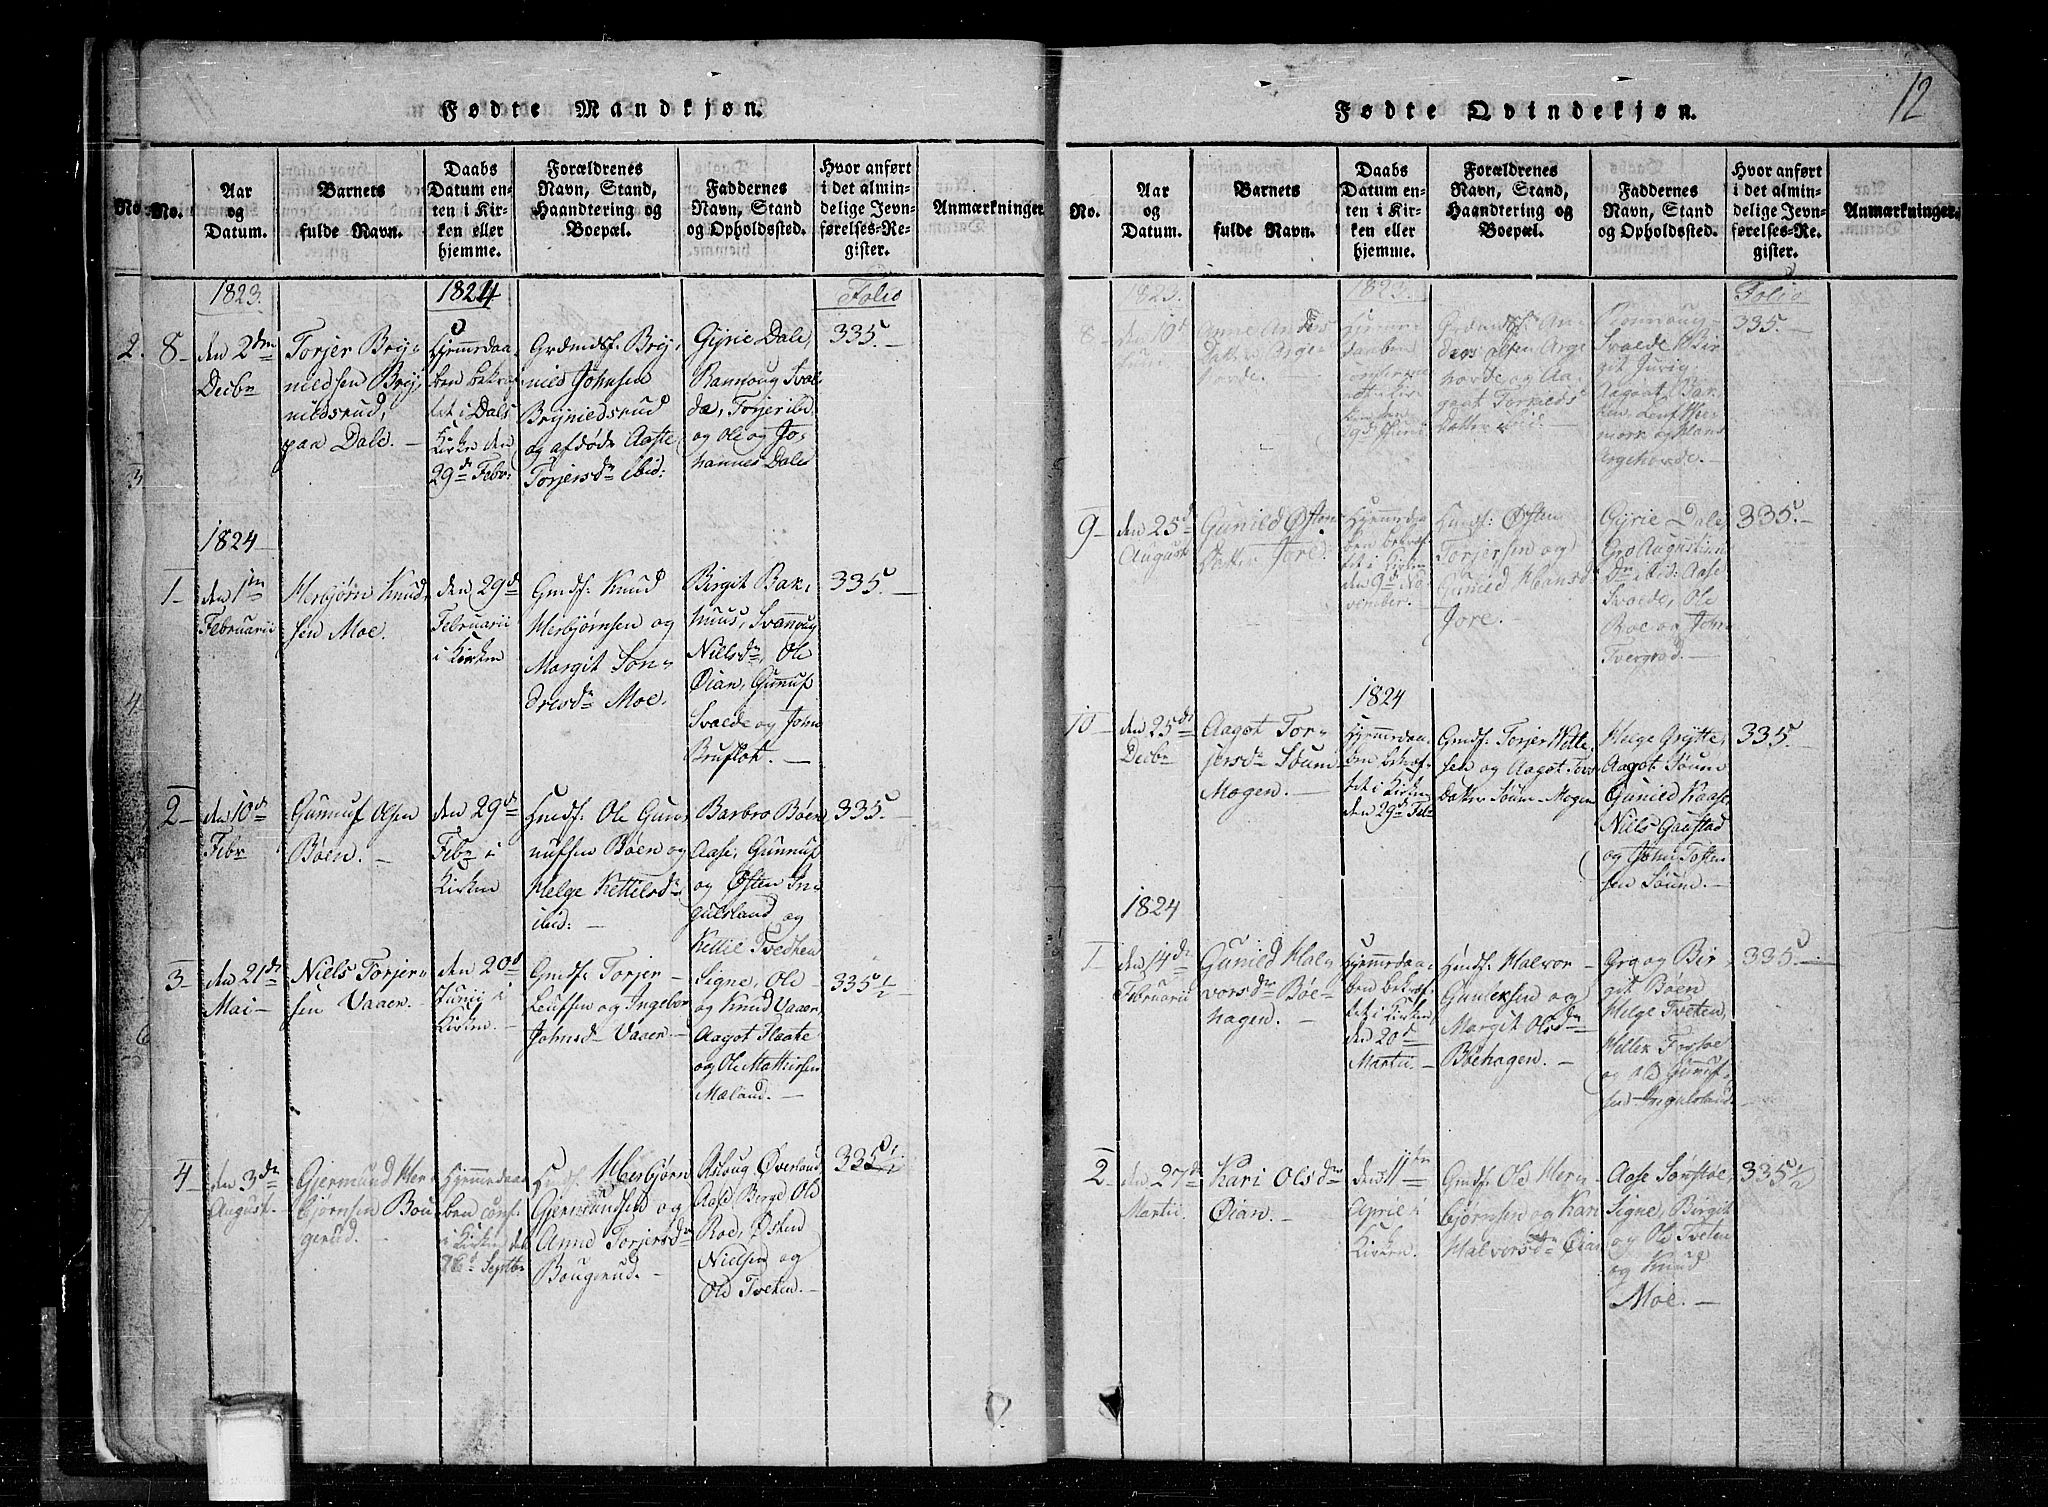 12
Fødte Mandkjøn.
No.
No.
Aar
og
Datum.
Barnets
fulde Navn.
Daabs
Datum en-
ten i Kir-
ken eller
hjemme.
Forældrenes
Navn, Stand,
Haandtering og
Boepæl.
Faddernes
Navn, Stand
og Opholdssted.
Hvor anført
i det almin-
delige Jevn-
førelses-Re-
gister.
Anmærkninger
1823.
1824
Folio
2. 8
den 2den
Decbr
Torjer Bry-
nildsen Bry-
nildsrud,
paa Dale.
Hjemmedaa-
ben bekræf-
tet i Dals
Kirke den
29de Febr:
Grdmdsf. Bry-
nild Johnsen
Brynildsrud
og afdøde Aaste
Torjersdr ibid:
Gyrie Dale,
Rannoug Sval
de, Torjer ibd.
og Ole og Jo-
hannes Dale
335.
3
1824
1
den 1ste
Februarii
Herbjørn Knud-
sen Moe.
den 29de
Februarii
i Kirken
Gmdsf. Knud
Herbjørnsen og
Margit Son-
dresdr Moe.
Birgit Bak-
huus, Svannoug
Nielsdr, Ole
Øian, Gunnuf
Svalde og John
Bruflot.
335.
4
2
den 10de
Febr
Gunnuf Olsen
Bøen.
den 29de
Febr i
Kirken
Hmdsf. Ole Gun-
nufsen Bøen og
Helge Kettilsdr
ibid:
Barbro Bøen
Aase, Gunnuf
og Østen In-
gulsland og
Kettil Tvedten
335.
3
den 21de
Mai
Niels Torjer-
sen Vaaer.
den 20de
Junii i
Kirken.
Gmdsf. Torjer
Leufsen og Ingebor
Johnsd Vaaer.
Signe, Ole
og Knud Vaaer
Aagot Flaate
og Ole Mathisen
Mæland.
335 1/2
6
4
den 3de
August.
Gjermund Her-
bjørnsen Bou-
gerud.
Hjemmedaa-
ben conf.
i Kirken den
26de Septbr
Hmdsf. Herbjørn
Gjermundsen og
Anne Torjersdr
Bougerud.
Asloug Øverland
Aase Berge, Ole
Roe, Østen
Nielsen og
Ole Tveten.
335 1/2
7
Fødte Qvindekjøn.
No.
Aar
og
Datum.
Barnets
fulde Navn.
Daabs
Datum en-
ten i Kir-
ken eller
hjemme.
Forældrenes
Navn, Stand,
Haandtering og
Boepæl.
Faddernes
Navn, Stand
og Opholdssted.
Hvor anført
i det almin-
delige Jevn-
førelses-Re-
gister.
Anmærkninger.
1823.
1823.
Folio
8
den 10de
Anne Anders
Datter Arge-
horde.
335.
Argehorde.
9
den 25de
August
Gunild Østens
Datter Jore.
Hjemmedaa
ben bekræf
tet i Kirken
den 9de No-
vember.
Hmdsf: Østen
Torjersen og
Gunild Hansd
Jore.
Gyrie Dale,
Gro Augustin
dr ibid: Aase
Svalde, Ole
Boe og John
Tvergrad.
335.
1824
10
den 25de
Decbr
Aagot Tor-
jersdr Søum
Mogen.
Hjemmedaa-
ben bekræf-
tet i Kirken
den 29de Feb
Gmdsf: Torjer Helle-
sen og Aagot Tors
Datter Søum-Mogen
Helge Grytte,
Aagot Søum
Gunild Kaase
Niels Gaustad
og John Tosten
sen Søum.
335.
1824
1
den 14de
Februarii
Gunild Hal-
vorsdr Bøe-
hagen.
Hjemmedaa-
ben bekræf-
tet i Kirken
den 20de
Martii
Hmdsf: Halvor
Gunleksen og
Margit Olsdr
Bøehagen.
Gro og Bir-
git Bøen
Helge Tveten,
Hellek Forsøe
og Ole Gunnuf-
sen Ingulsland
335.
2
den 27de
Martii.
Kari Olsdr
Øian.
den 11te
April i
Kirken.
Gmdsf. Ole Her-
bjørnsen og Kari
Halvorsdr Øian
Aase Sønstøe,
Signe, Birgit
og Ole Tveten
og Knud
Moe.
335 1/2